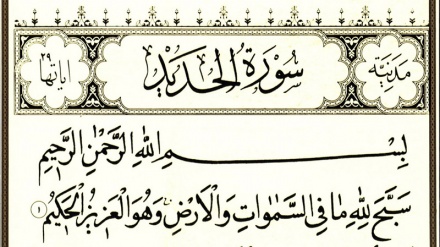 مدنية سورة الحديد آياتها ٢٩
بِسْمِ اللهِ الرَّحْمٰنِ الرَّحِيمِ
سَبَّحَ لِلّٰهِ مَا فِي السَّمٰوَاتِ وَالْاَرْضِ وَهُوَ الْعَزِيزُ الْحَكِيمُ ١